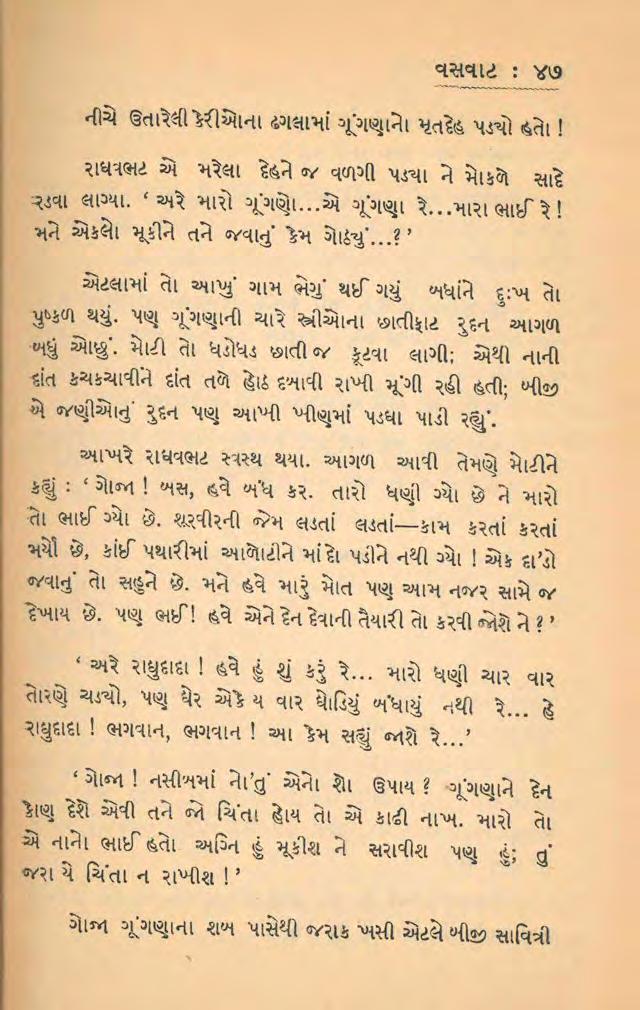 વસવાટ : ૪૭
નીચે ઉતારેલી કેરીઓના ઢગલામાં ગૂંગણાનો મૃતદેહ પડ્યો હતો !
રાઘવભટ એ મરેલા દેહને જ વળગી પડ્યા ને મોકળે સાદે
રડવા લાગ્યા. ‘ અરે મારો ગૂંગણો...એ ગૂંગણા રે...મારા ભાઈ રે !
મને એકલો મૂકીને તને જવાનું કેમ ગોઠ્યું...? ’
એટલામાં તો આખું ગામ ભેગું થઈ ગયું બધાંને દુઃખ તો
પુષ્કળ થયું. પણ ગૂંગણાની ચારે સ્ત્રીઓના છાતીફાટ રુદન આગળ
બધું ઓછું. મોટી તો ધડોધડ છાતી જ કૂટવા લાગી; એથી નાની
દાંત કચકચાવીને દાંત તળે હોઠ દબાવી રાખી મૂંગી રહી હતી; બીજી
બે જણીઓનું રુદન પણ આખી ખીણમાં પડઘા પાડી રહ્યું.
આખરે રાઘવભટ સ્વસ્થ થયા. આગળ આવી તેમણે મોટીને
કહ્યું : ‘ ગોજા ! બસ, હવે બંધ કર. તારો ધણી ગ્યો છે ને મારો
તો ભાઈ ગ્યો છે. શૂરવીરની જેમ લડતાં લડતાં—કામ કરતાં કરતાં
મર્યો છે, કાંઈ પથારીમાં આળોટીને માંદો પડીને નથી ગ્યો ! એક દા’ડો
જવાનું તો સહુને છે. મને હવે મારું મોત પણ આમ નજર સામે જ
દેખાય છે. પણ ભઈ! હવે એને દેન દેવાની તૈયારી તો કરવી જોશે ને ? ’
‘ અરે રાઘુદાદા ! હવે હું શું કરું રે... મારો ધણી ચાર વાર
તોરણે ચડ્યો, પણ ઘેર એકે ય વાર ઘોડિયું બંધાયું નથી રે... હે
રાઘુદાદા ! ભગવાન, ભગવાન ! આ કેમ સહ્યું જાશે રે...’
‘ ગોજા ! નસીબમાં નો’તું એનો શો ઉપાય ? ગૂંગણાને દેન
કોણ દેશે એવી તને જો ચિંતા હોય તો એ કાઢી નાખ. મારો તો
એ નાનો ભાઈ હતો. અગ્નિ હું મૂકીશ ને સરાવીશ પણ હું; તું
જરા યે ચિંતા ન રાખીશ ! ’
ગોજા ગૂંગણાના શબ પાસેથી જરાક ખસી એટલે બીજી સાવિત્રી